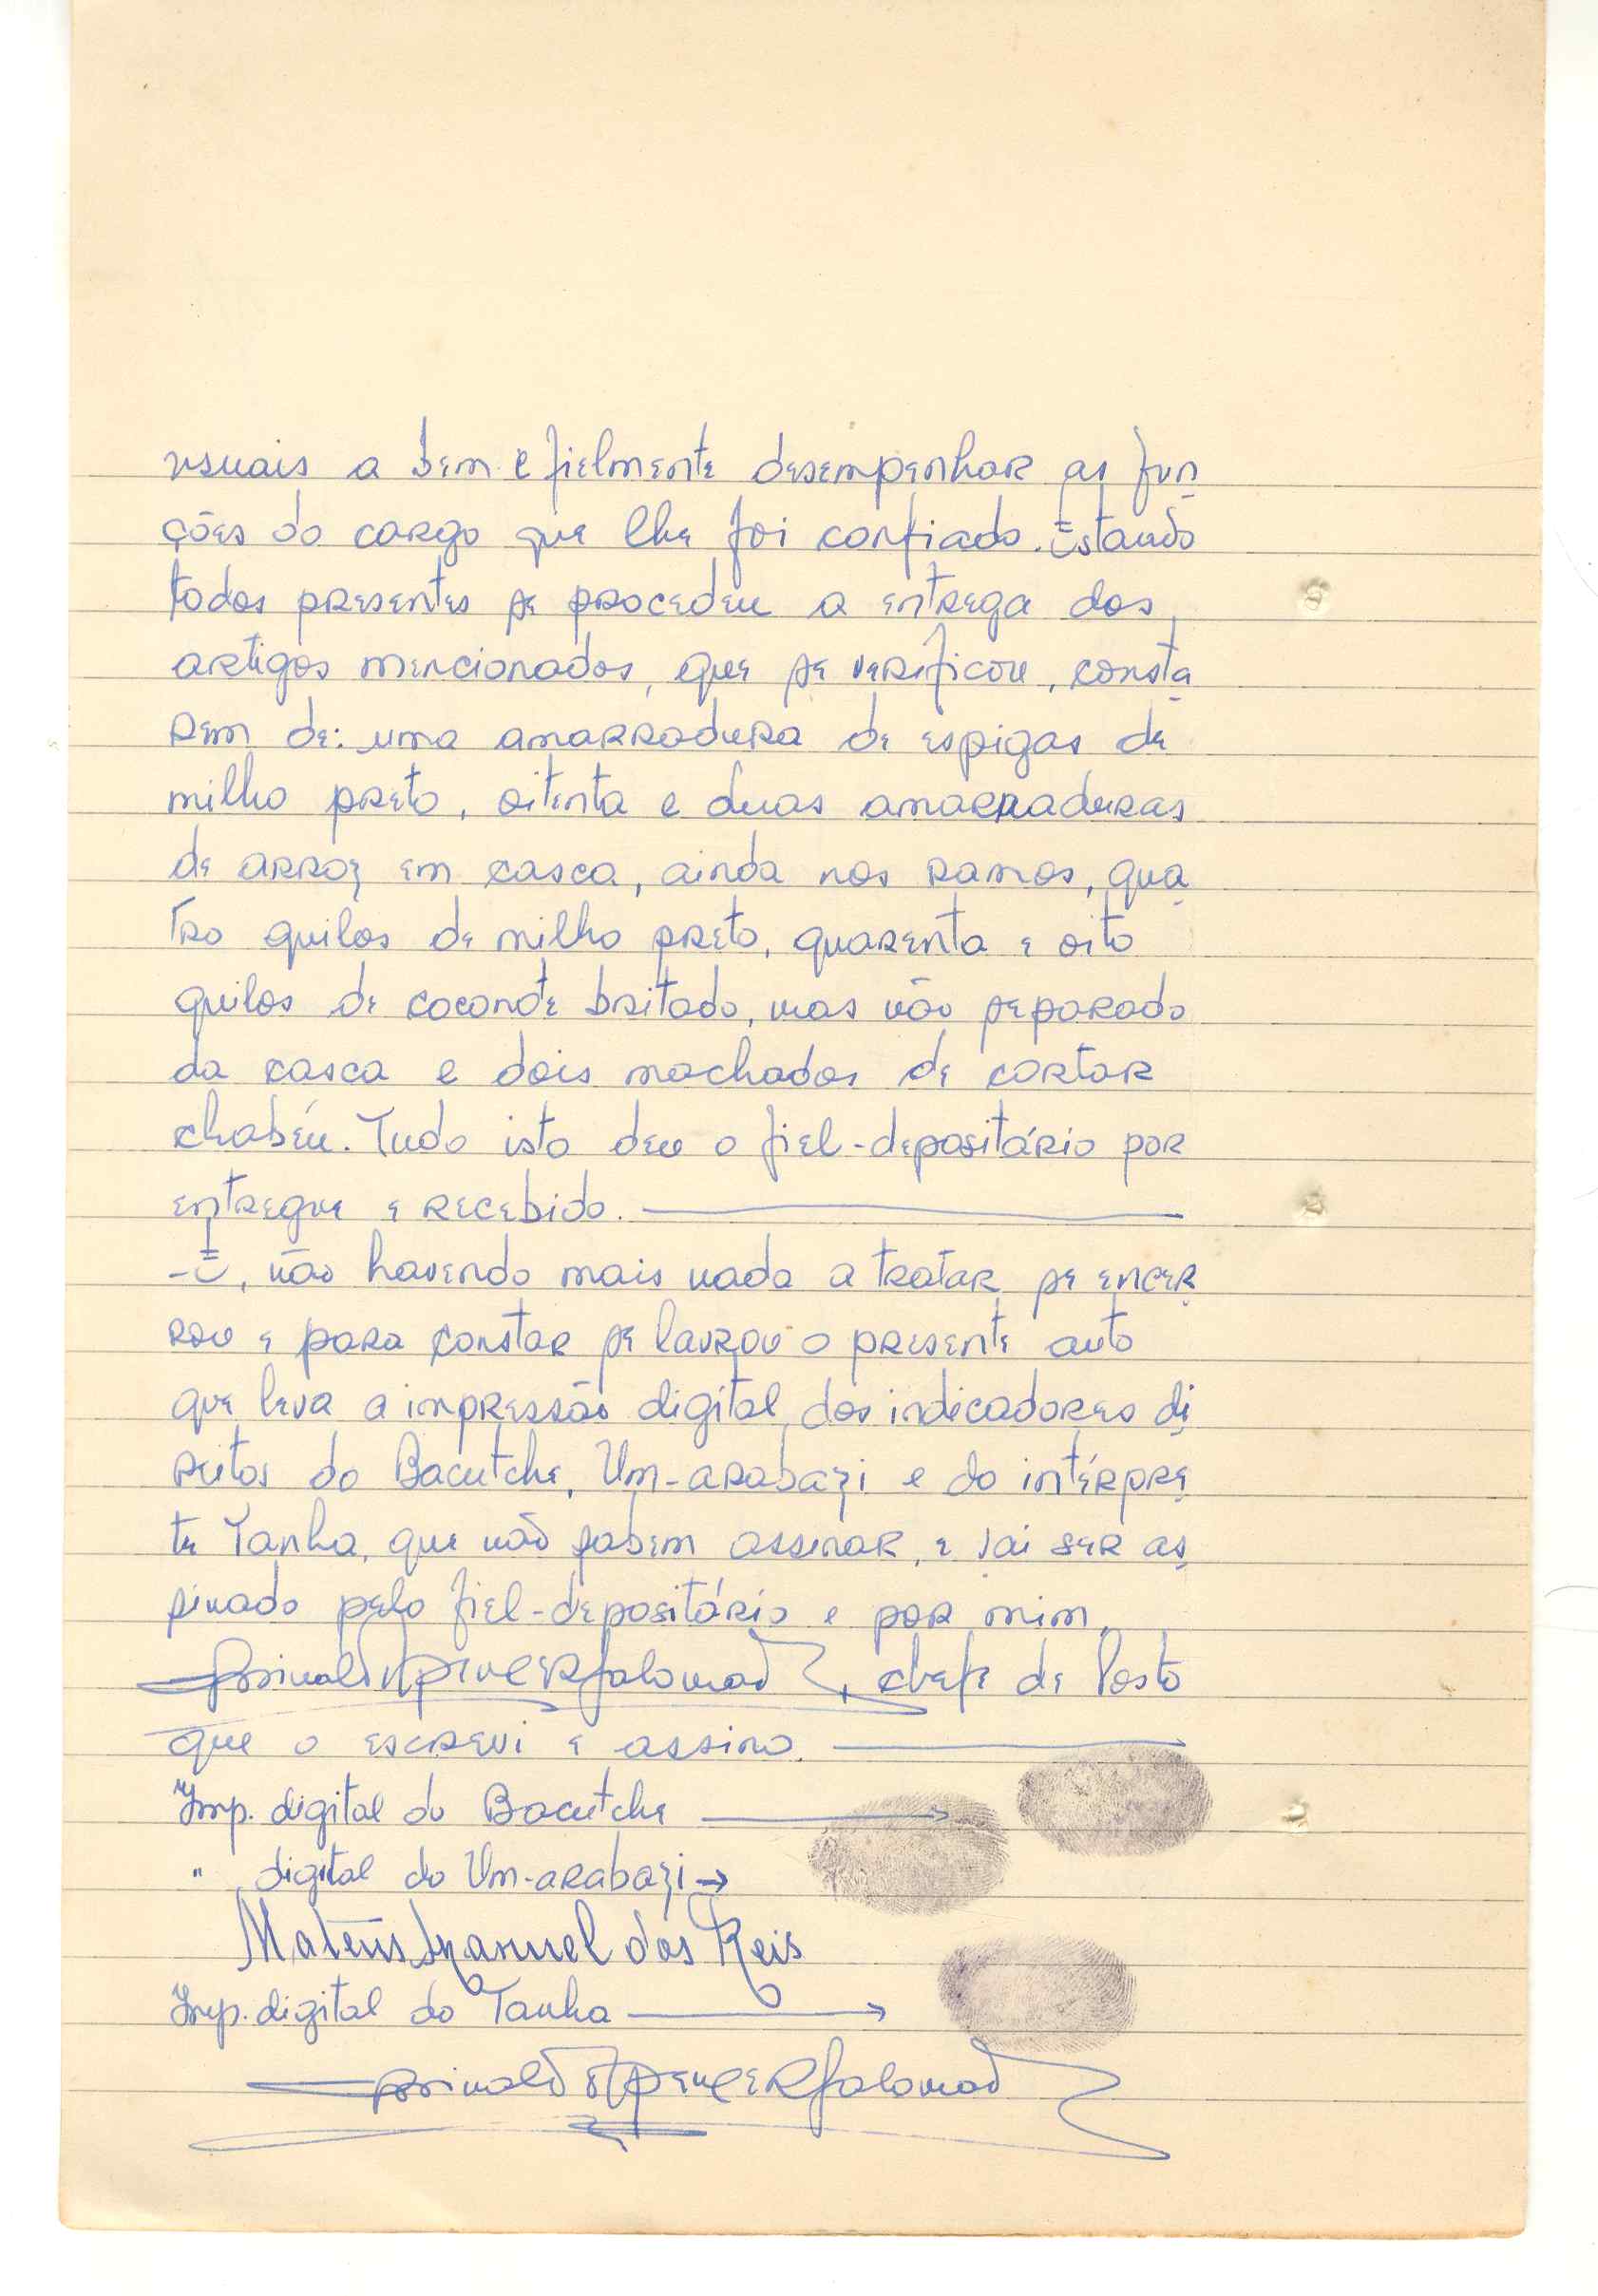 usuais a bem e fielmente desempenhar as fun
ções do cargo que lhe foi confiado. Estando
todos presentes se procedeu a entrega dos
artigos mencionados, que se verificou, consta
rem de: uma amarradura de espigas de
milho preto, oitenta e duas amarraduras
de arroz em casca, ainda nos ramos, qua
tro quilos de milho preto, quarenta e oito
quilos de coconote britado, mas não separado
da casca e dois machados de cortar
chabéu. Tudo isto deu o fiel-depositário por
entregue e recebido.
- E, não havendo mais nada a tratar se encer
rou e para constar se lavrou o presente auto
que leva a impressão digital dos indicadores di
reitos do Bacutche, Um-arabazi e do intérpre
te Tanha, que não sabem assinar, e vai ser as
sinado pelo fiel-depositário e por mim,
, chefe de Posto
que o escrevi e assino.
Imp. digital do Bacutche
" digital do Um-arabazi →
Mateus Manuel dos Reis
Imp. digital do Tanha →